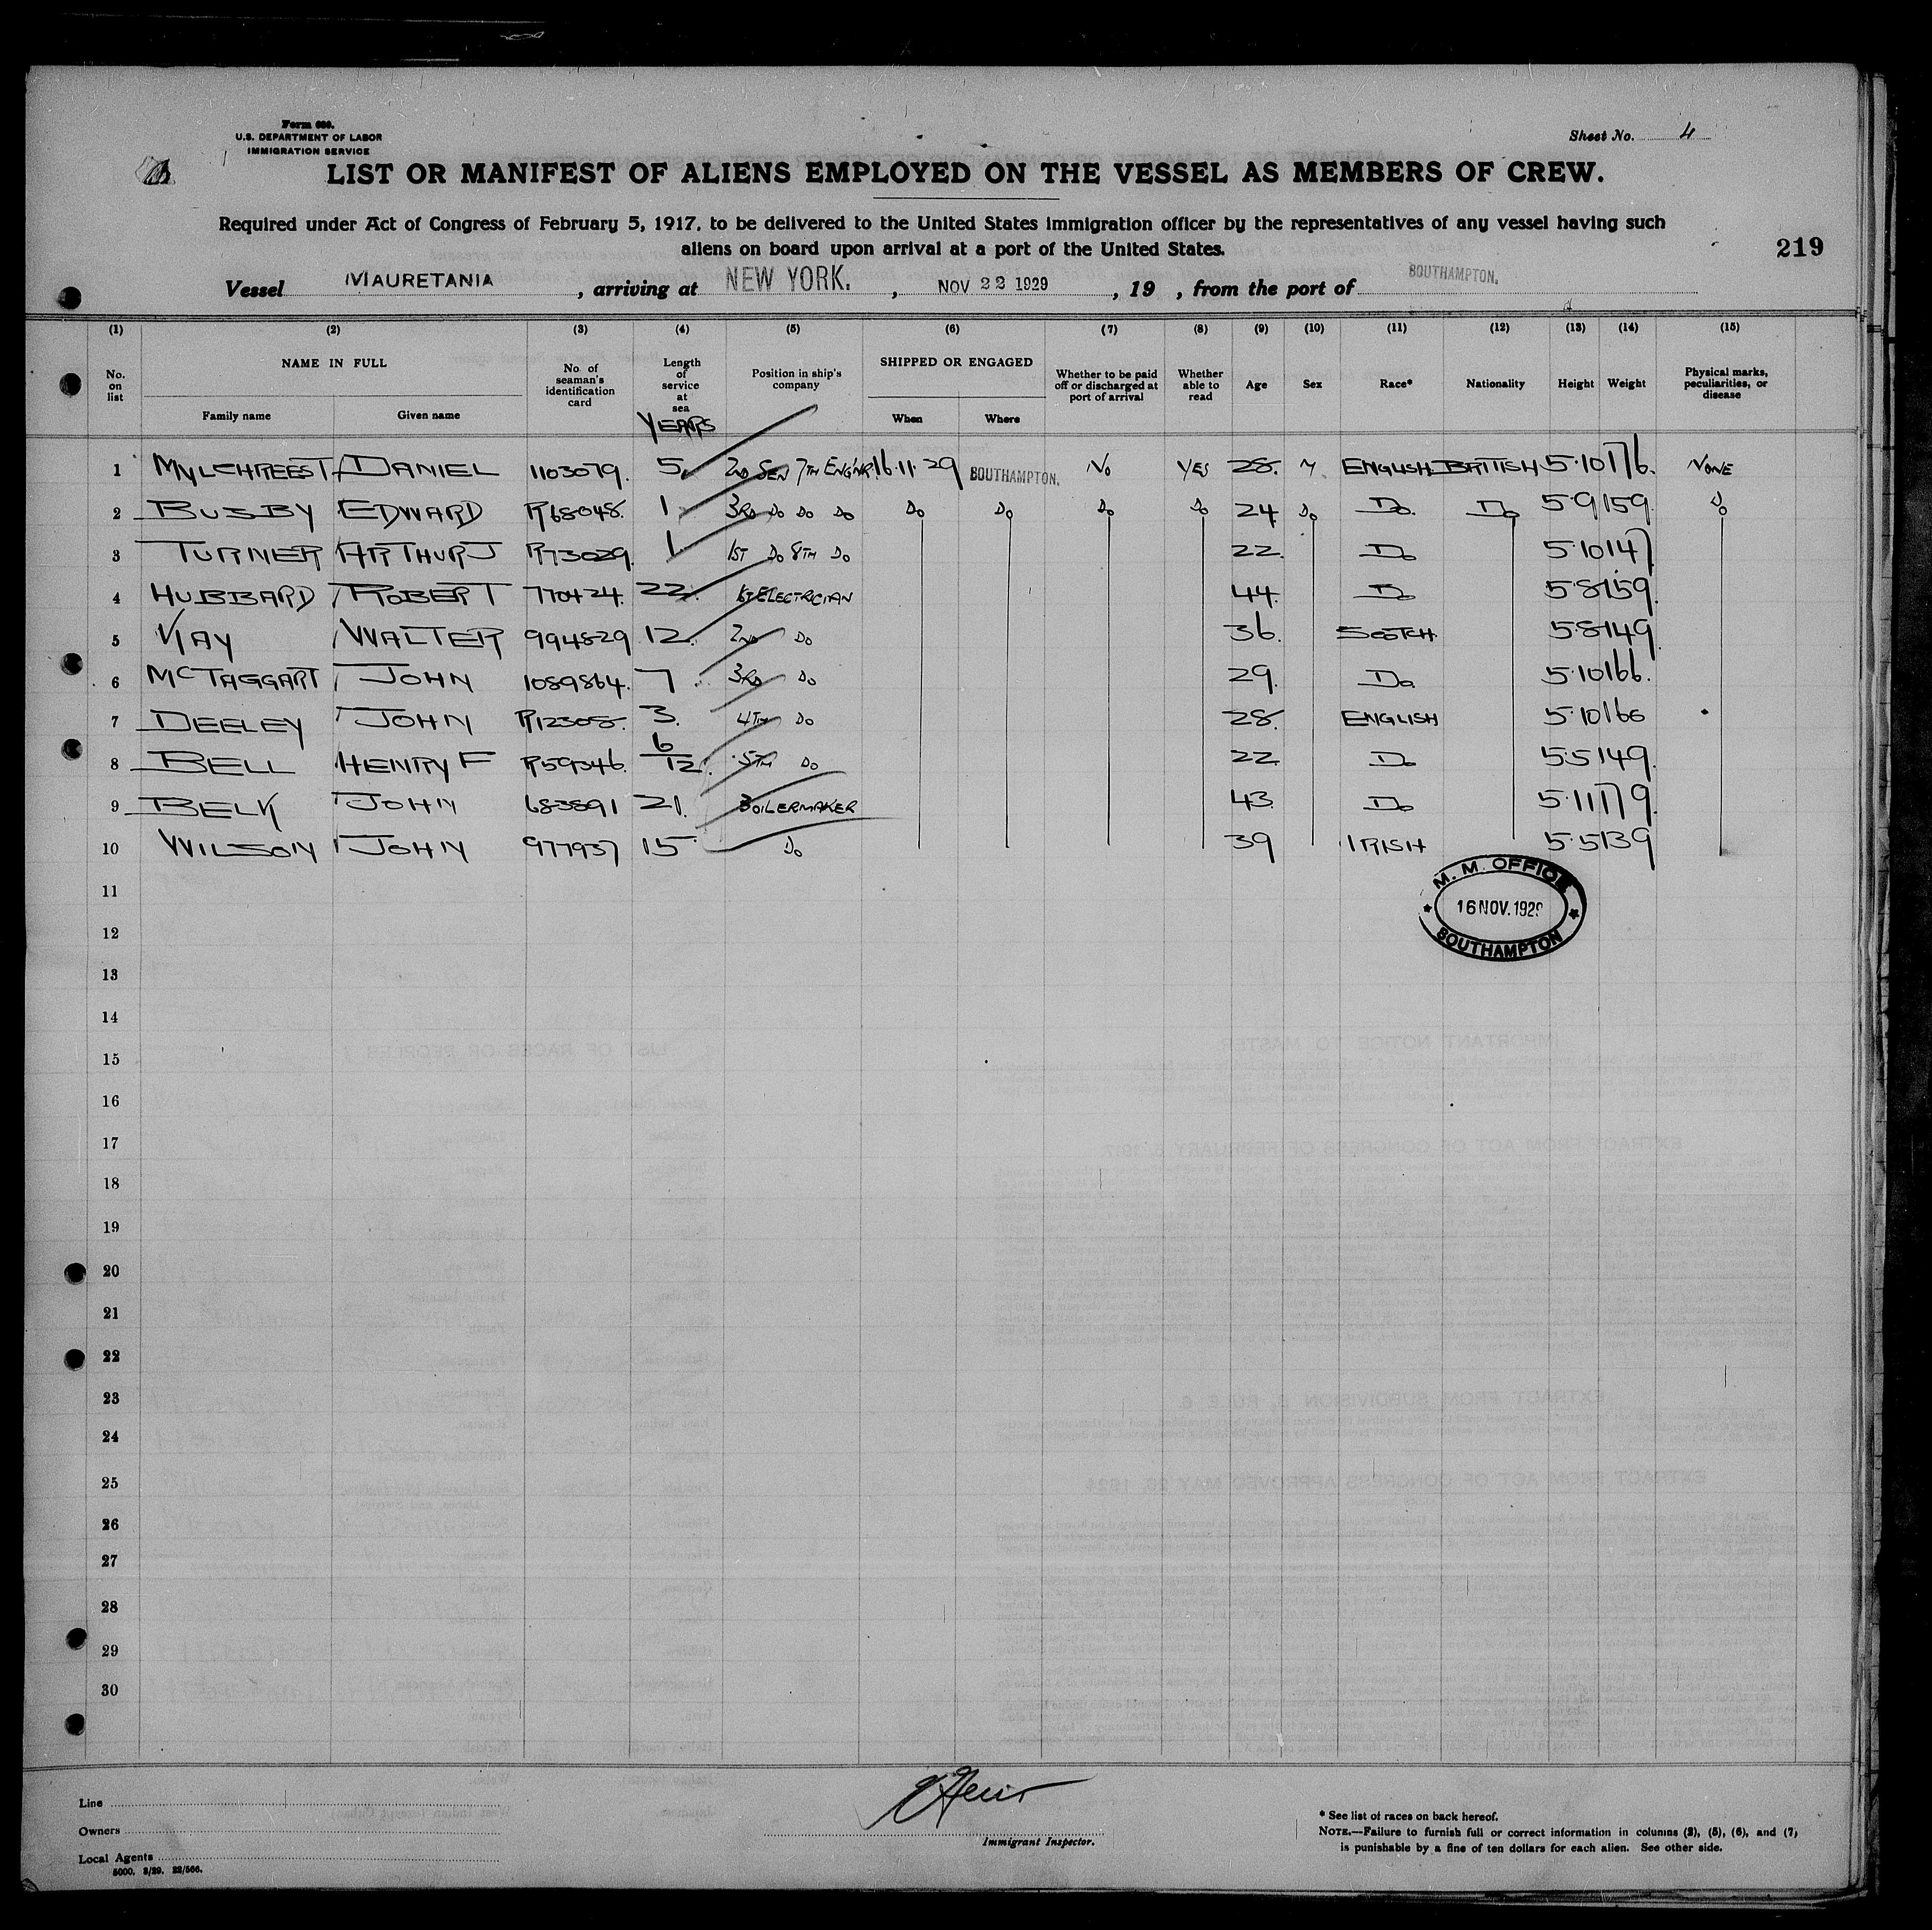 Form 680.
U.S. DEPARTMENT OF LABOR
IMMIGRATION SERVICE
Sheet No. 4
LIST OR MANIFEST OF ALIENS EMPLOYED ON THE VESSEL AS MEMBERS OF CREW.
Required under Act of Congress of February 5, 1917, to be delivered to the United States immigration officer by the representatives of any vessel having such
aliens on board upon arrival at a port of the United States.
219
Vessel MAURETANIA, arriving at NEW YORK., NOV 22 1929, 19 , from the port of SOUTHAMPTON.
(1) (2) (3) (4) (5) (6) (7) (8) (9) (10) (11) (12) (13) (14) (15)
No. on list NAME IN FULL Family name Given name No. of seaman's identification card Length of service at sea YEARS Position in ship's company SHIPPED OR ENGAGED When Where Whether to be paid off or discharged at port of arrival Whether able to read Age Sex Race* Nationality Height Weight Physical marks, peculiarities, or disease
1 MYLCHREEST DANIEL 1103079. 5 2ND SEN 7TH ENG'NR 16.11.29 SOUTHAMPTON. NO YES 28. M ENGLISH BRITISH 5.10 176. NONE
2 BUSBY EDWARD R68048. 1 3RD DO DO DO DO DO DO DO 24 DO DO. DO 5.9 159. DO
3 TURNER ARTHUR J R73029 1. 1ST DO 8TH DO 22. DO 5.10 147
4 HUBBARD ROBERT 770424. 22. 1ST ELECTRICIAN 44. DO 5.8 159.
5 KAY WALTER 994829 12. 2ND DO 36. SCOTCH. 5.8 149
6 MCTAGGART JOHN 1089864. 7. 3RD DO 29. DO. 5.10 166.
7 DEELEY JOHN R12308. 3. 4TH DO 28. ENGLISH 5.10 166
8 BELL HENRY F R59346. 6/12. 5TH DO 22. DO 5.5 149.
9 BELK JOHN 683891 21. BOILERMAKER 43. DO 5.11 179.
10 WILSON JOHN 977937 15 DO 39 IRISH 5.5 139
11
M. M. OFFICE
16 NOV. 1929
SOUTHAMPTON
12
13
14
15
16
17
18
19
20
21
22
23
24
25
26
27
28
29
30
Line
Owners
Local Agents
5000. 3/29. 22/566.
Immigrant Inspector.
* See list of races on back hereof.
NOTE.—Failure to furnish full or correct information in columns (2), (5), (6), and (7)
is punishable by a fine of ten dollars for each alien. See other side.